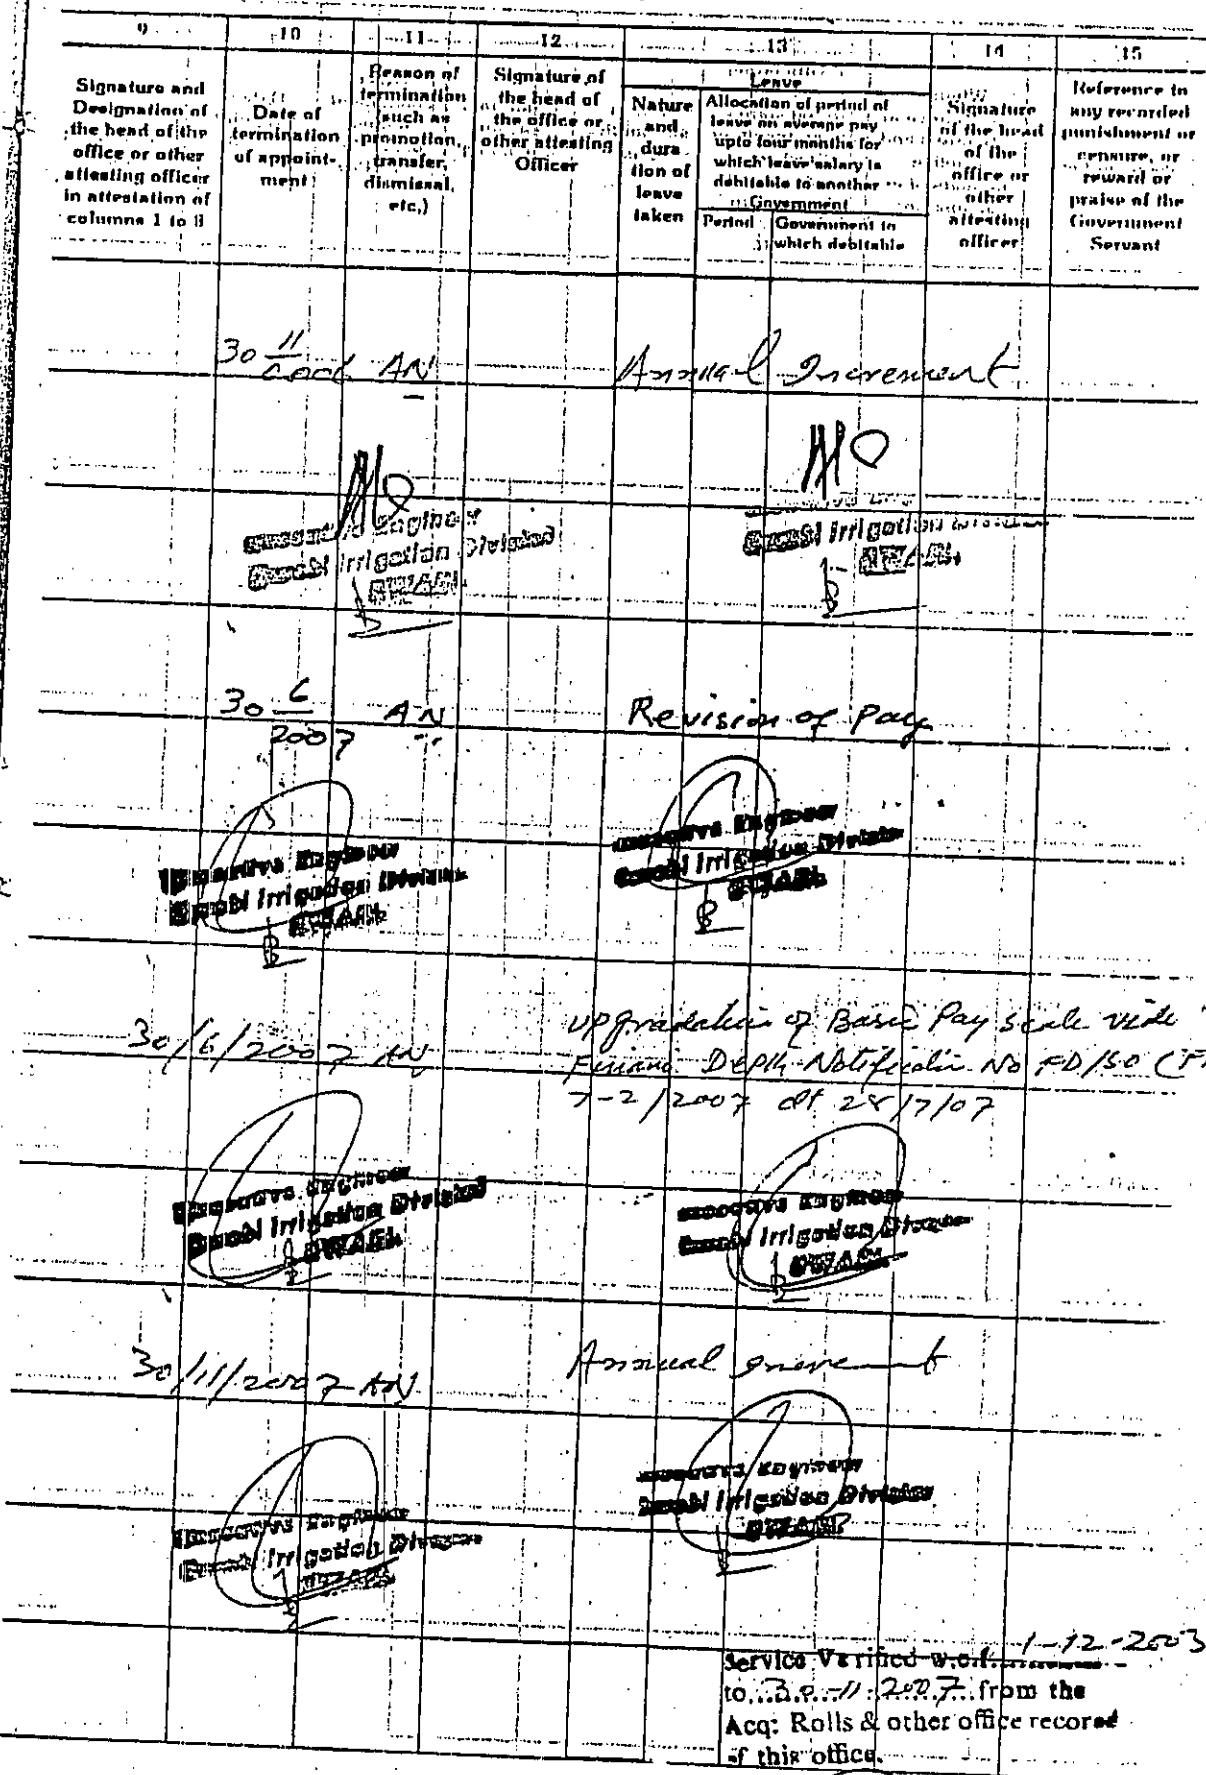 9 10 11 12 13 14 15
Signature and Designation of the head of the office or other attesting officer in attestation of columns 1 to 8
Date of termination of appoint-ment
Reason of termination such as promotion, transfer, dismissal, etc.)
Signature of the head of the office or other attesting Officer
Leave
Nature and dura tion of leave taken
Allocation of period of leave on average pay upto four months for which leave salary is debitable to another Government
Period
Government to which debitable
Signature of the head of the office or other attesting officer
Reference to any recorded punishment or censure, or reward or praise of the Government Servant
30 11 AN Annual Increment
Engineer
Irrigation Division
Irrigation
30 6/2007 AN Revision of Pay
Executive Engineer
Swabi Irrigation Division
SWABI
Executive Engineer
Swabi Irrigation Division
SWABI
30/6/2007 AN
upgradation of Basic Pay scale vide
Finance Deptt Notification No FD/SO (F
7-2/2007 dt 28/7/07
Executive Engineer
Swabi Irrigation Division
SWABI
Executive Engineer
Swabi Irrigation Division
SWABI
30/11/2007 AN Annual increment
Executive Engineer
Swabi Irrigation Division
SWABI
Executive Engineer
Swabi Irrigation Division
Service Verified w.e.f. 1-12-2003
to 30-11-2007 from the
Acq: Rolls & other office record
of this office.